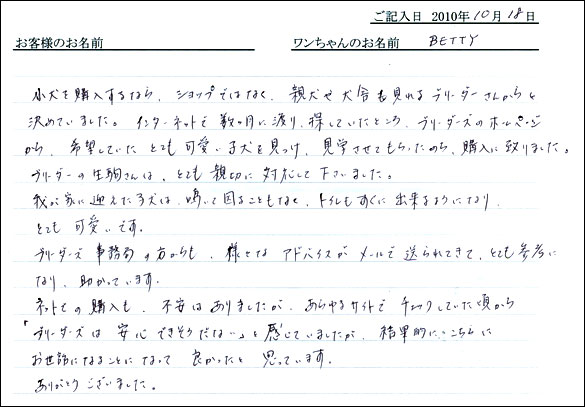 ご記入日 2010年10月18日
お客様のお名前 ワンちゃんのお名前 BETTY
小犬を購入するなら、ショップではなく、親犬や犬舎も見れるブリーダーさんからと
決めていました。インターネットで数ヶ月に渡り、探していたところ、ブリーダーズのホームページ
から、希望していたとても可愛い子犬を見つけ、見学させてもらったのち、購入に致りました。
ブリーダーの生駒さんは、とても親切に対応して下さいました。
我が家に迎えた子犬は、鳴いて困ることもなく、トイレもすぐに出来るようになり、
とても可愛いです。
ブリーダーズ事務局の方からも、様々なアドバイスがメールで送られてきて、とても参考に
なり、助かっています。
ネットでの購入も、不安はありましたが、あらゆるサイトでチェックしていた頃から
「ブリーダーズは安心できそうだな…」と感じていましたが、結果的にこちらに
お世話になることになって良かったと思っています。
ありがとうございました。